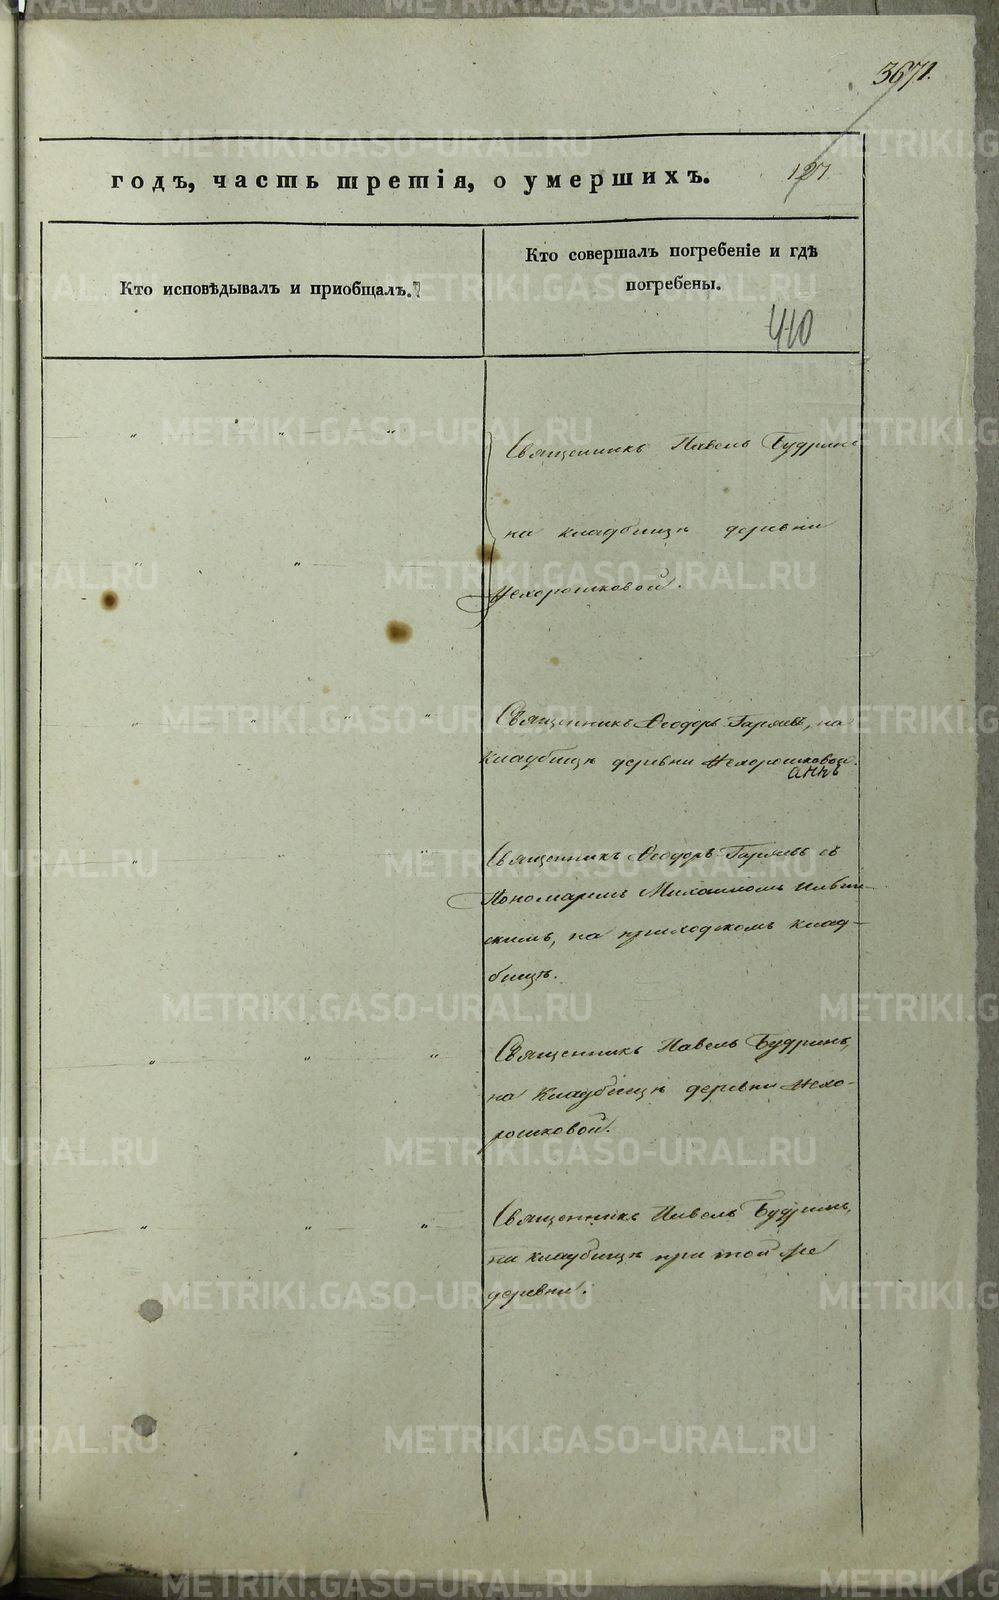 367.
127.
годъ, часть третія, о умершихъ.
Кто исповѣдывалъ и пріобщалъ.
Кто совершалъ погребеніе и гдѣ
погребены.
410
Священникъ Павелъ Будринъ
на кладбищѣ деревни
Нехорошковой.
Священникъ Ѳеодоръ Гаряевъ, на
кладбищѣ деревни Нехорошковой.
Священникъ Ѳеодоръ Гаряевъ съ
Пономаремъ Михаиломъ Ильин-
скимъ, на приходскомъ клад-
бищѣ.
Священникъ Павелъ Будринъ,
на Кладбищѣ деревни Нехо-
рошковой.
Священникъ Павелъ Будринъ,
на кладбищѣ при той же
деревни.
METRIKI.GASO-URAL.RU